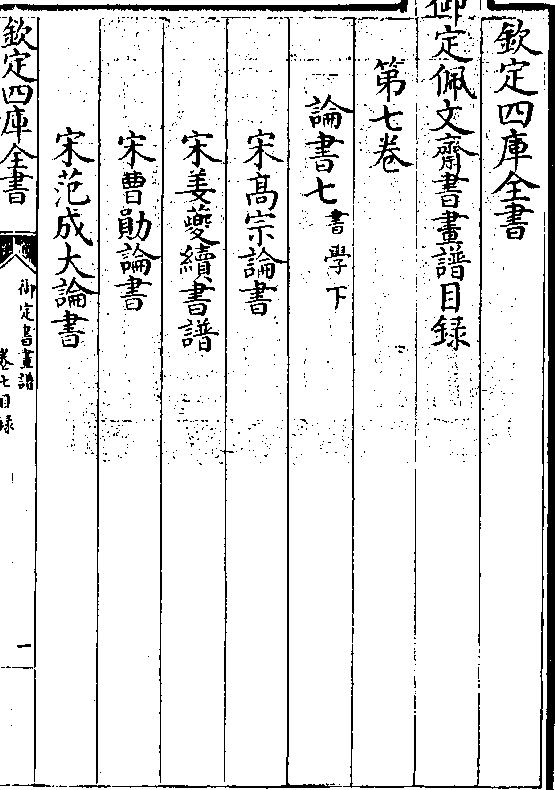 欽定四庫全書
御定佩文齋書畫譜目錄
第七卷
論書七書學下
宋高宗論書
宋姜夔續書譜
宋曹勛論書
宋范成大論書
欽定四庫全書
御定書畫譜
卷七目錄
一